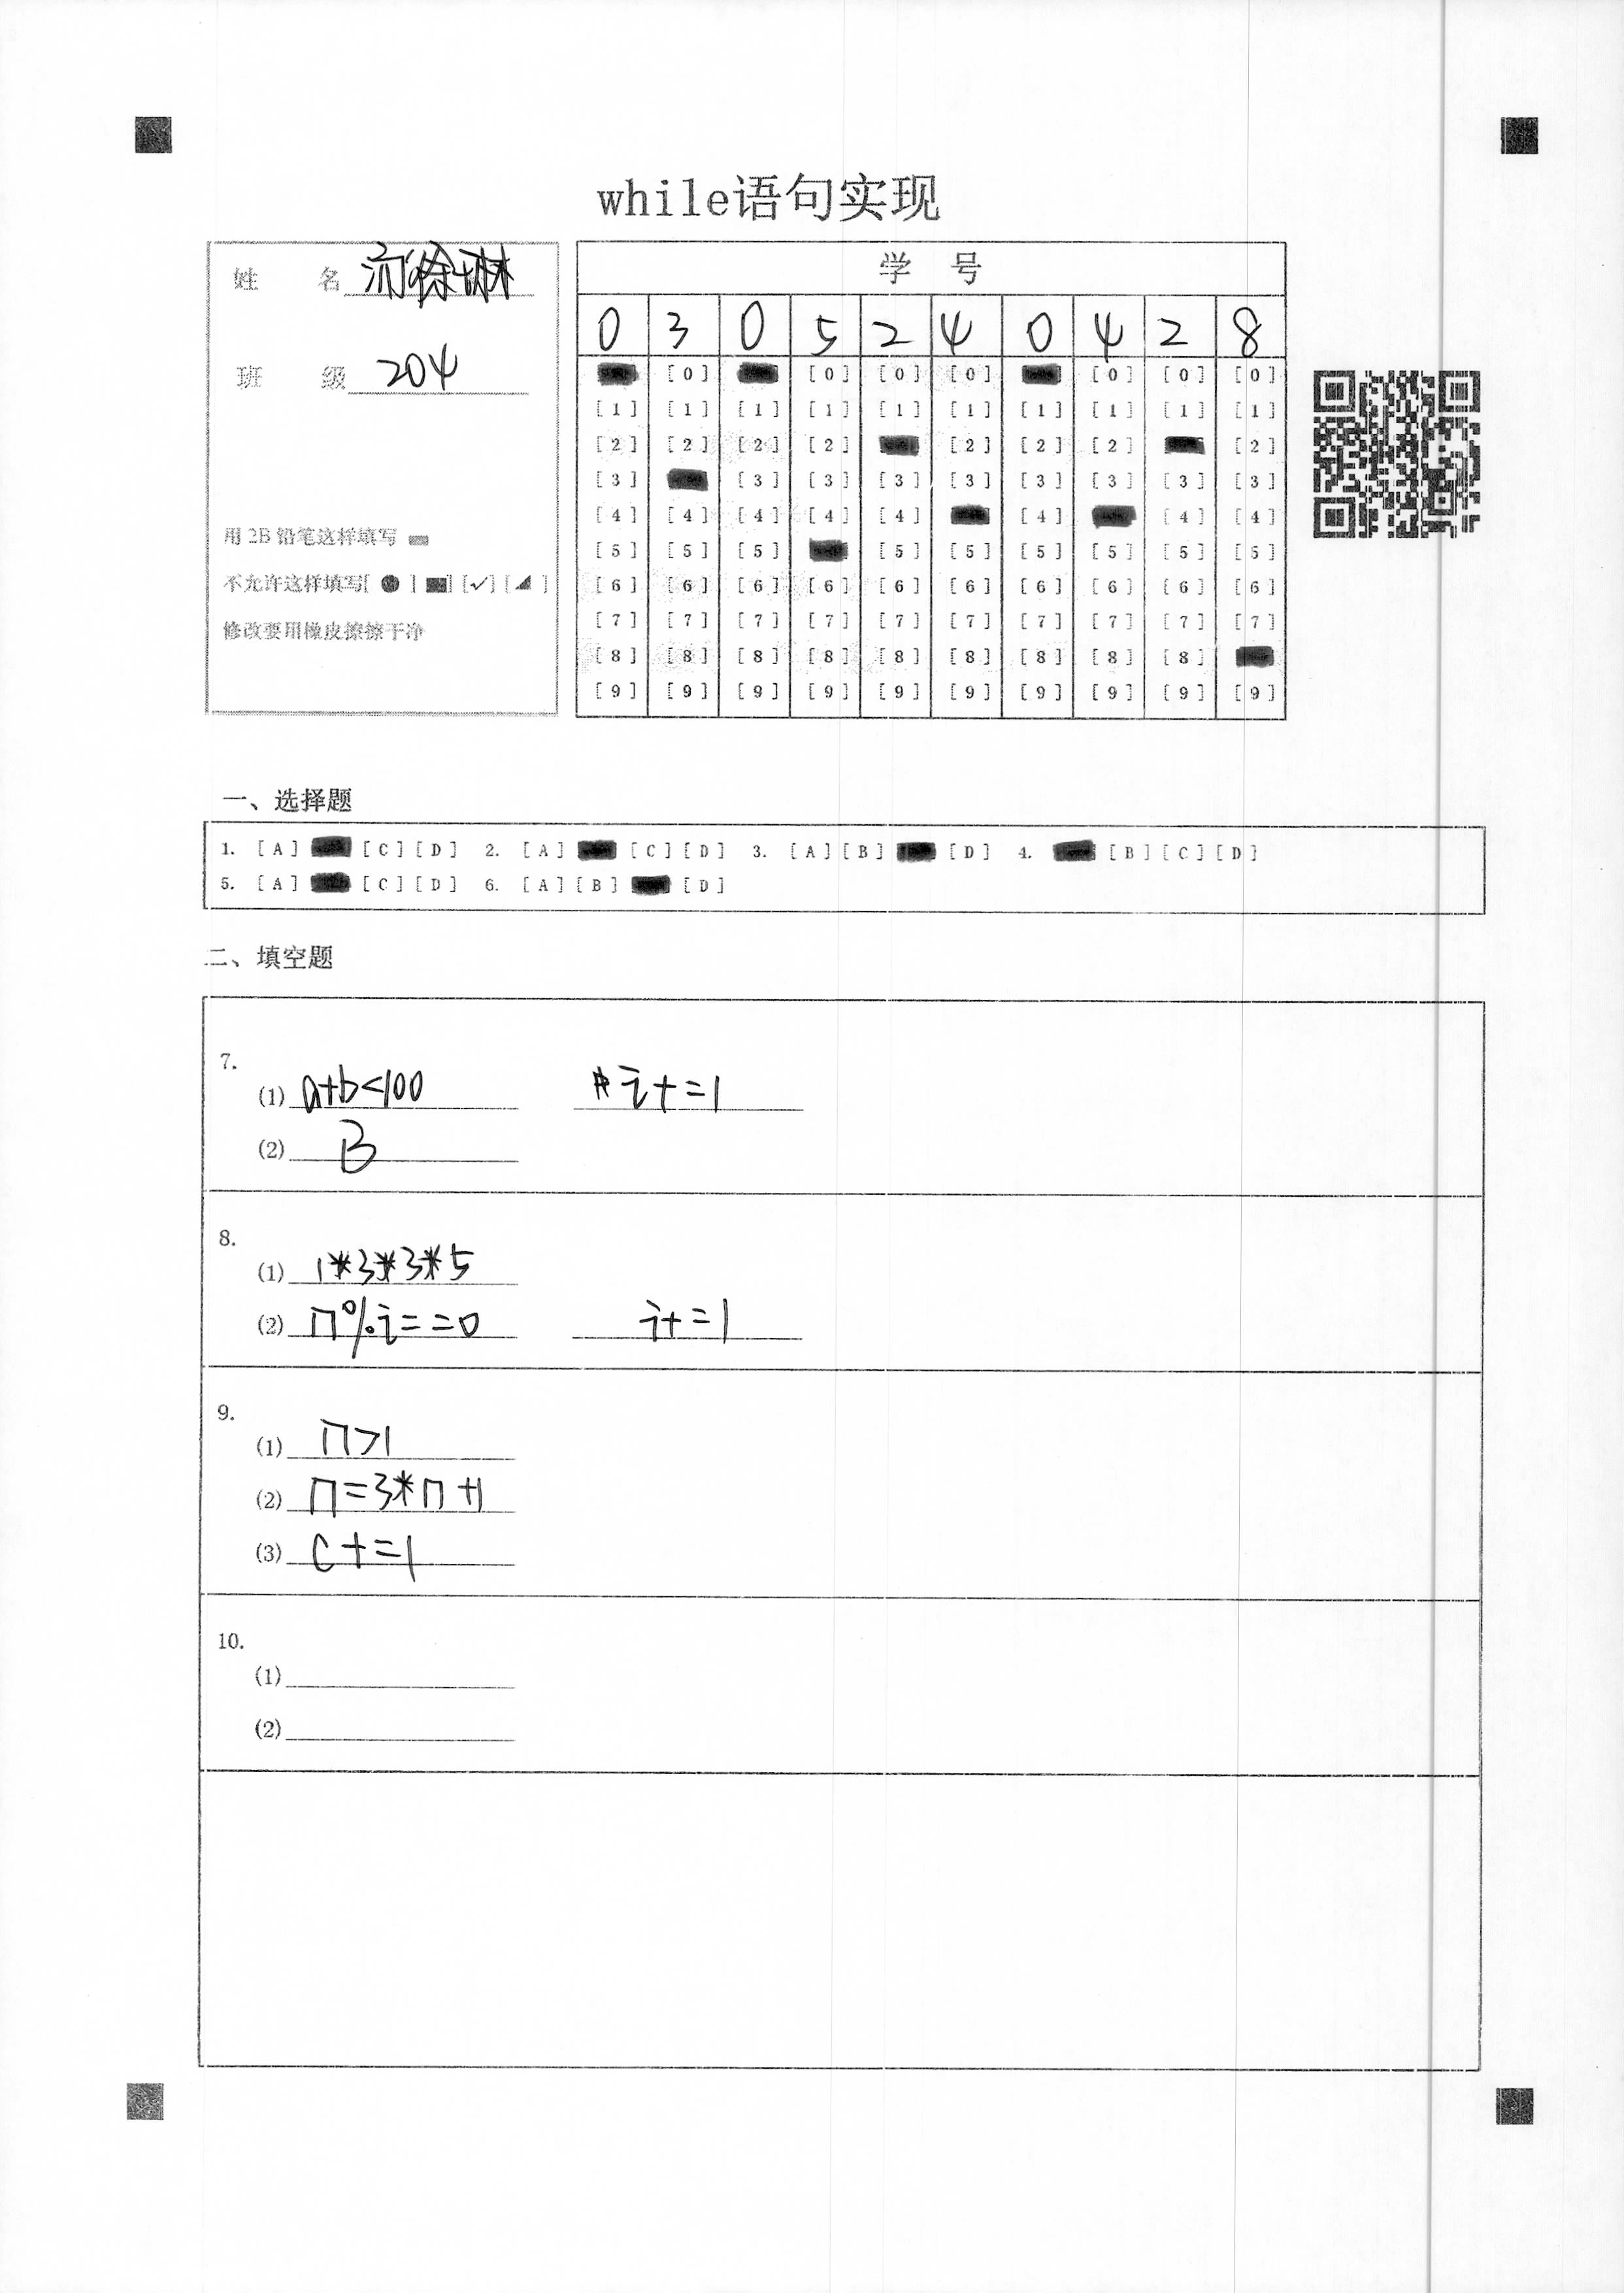 while语句实现
姓 名
班 级 204
用 2B 铅笔这样填写
不允许这样填写[ ● ] [■] [✓] [◢ ]
修改要用橡皮擦擦干净
学 号
0 3 0 5 2 4 0 4 2 8
[0] [0] [0] [0] [0] [0] [0]
[1] [1] [1] [1] [1] [1] [1] [1] [1] [1]
[2] [2] [2] [2] [2] [2] [2] [2]
[3] [3] [3] [3] [3] [3] [3] [3] [3]
[4] [4] [4] [4] [4] [4] [4] [4]
[5] [5] [5] [5] [5] [5] [5] [5] [5]
[6] [6] [6] [6] [6] [6] [6] [6] [6] [6]
[7] [7] [7] [7] [7] [7] [7] [7] [7] [7]
[8] [8] [8] [8] [8] [8] [8] [8] [8]
[9] [9] [9] [9] [9] [9] [9] [9] [9] [9]
一、选择题
1. [A] [C] [D] 2. [A] [C] [D] 3. [A] [B] [D] 4. [B] [C] [D]
5. [A] [C] [D] 6. [A] [B] [D]
二、填空题
7.
(1) a+b<100 i+=1
(2) B
8.
(1) 1*3*3*5
(2) n%i==0 i+=1
9.
(1) n>1
(2) n=3*n+1
(3) c+=1
10.
(1)
(2)